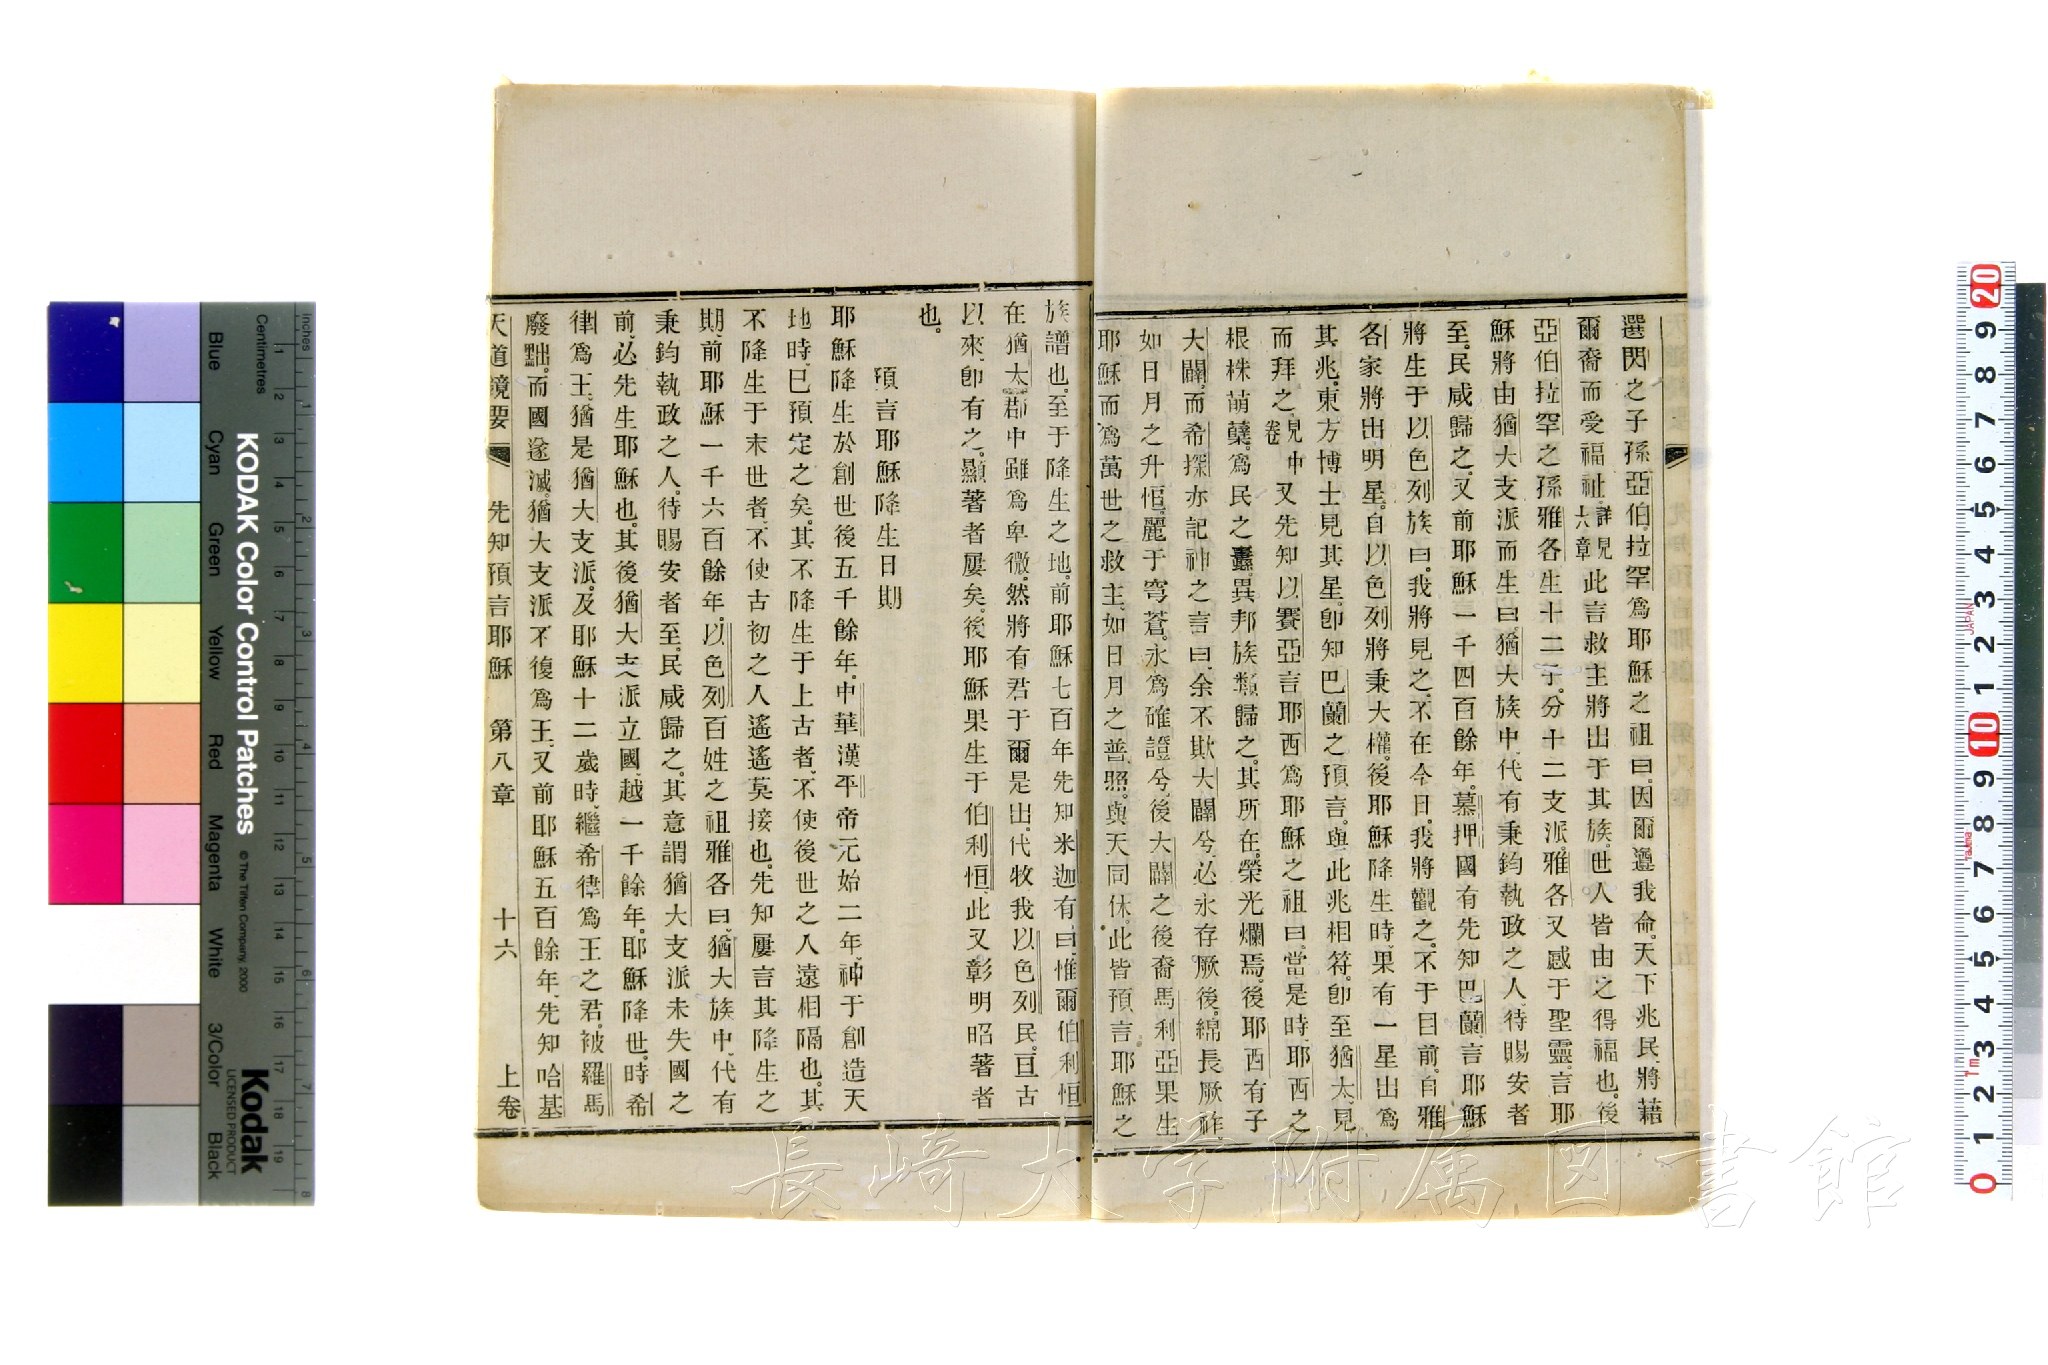 選閃之子孫亞伯拉罕爲耶穌之祖曰因爾遵我命天下兆民將藉
爾裔而受福祉詳見六章此言救主將出于其族世人皆由之得福也後
亞伯拉罕之孫雅各生十二子分十二支派雅各又感于聖靈言耶
穌將由猶大支派而生曰猶大族中代有秉鈞執政之人待賜安者
至民咸歸之又前耶穌一千四百餘年慕押國有先知巴蘭言耶穌
將生于以色列族曰我將見之不在今日我將觀之不于目前自雅
各家將出明星自以色列將秉大權後耶穌降生時果有一星出爲
其兆東方博士見其星卽知巴蘭之預言與此兆相符卽至猶太見
而拜之見中卷又先知以賽亞言耶西爲耶穌之祖曰當是時耶西之
根株萌蘗爲民之纛異邦族類歸之其所在榮光爛焉後耶西有子
大闢而希探亦記神之言曰余不欺大闢兮必永存厥後綿長厥祚
如日月之升恒麗于穹蒼永爲確證兮後大闢之後裔馬利亞果生
耶穌而爲萬世之救主如日月之普照與天同休此皆預言耶穌之
族譜也至于降生之地前耶穌七百年先知米迦有曰惟爾伯利恒
在猶太郡中雖爲卑微然將有君于爾是出代牧我以色列民亘古
以來卽有之顯著者屢矣後耶穌果生于伯利恒此又彰明昭著者
也
預言耶穌降生日期
耶穌降生於創世後五千餘年中華漢平帝元始二年神于創造天
地時已預定之矣其不降生于上古者不使後世之人遠相隔也其
不降生于末世者不使古初之人遙遙莫接也先知屢言其降生之
期前耶穌一千六百餘年以色列百姓之祖雅各曰猶大族中代有
秉鈞執政之人待賜安者至民咸歸之其意謂猶大支派未失國之
前必先生耶穌也其後猶大支派立國越一千餘年耶穌降世時希
律爲王猶是猶大支派及耶穌十二歲時繼希律爲王之君被羅馬
廢黜而國遂滅猶大支派不復爲王又前耶穌五百餘年先知哈基
天道鏡要 先知預言耶穌 第八章 十六 上卷
長崎大学附属図書館
KODAK Color Control Patches © The Tiffen Company, 2000
Kodak LICENSED PRODUCT
Blue Cyan Green Yellow Red Magenta White 3/Color Black
Inches 1 2 3 4 5 6 7 8
Centimetres 1 2 3 4 5 6 7 8 9 10 11 12 13 14 15 16 17 18 19
20 9 8 7 6 5 4 3 2 1 10 9 8 7 6 5 4 3 2 1 0
JAPAN